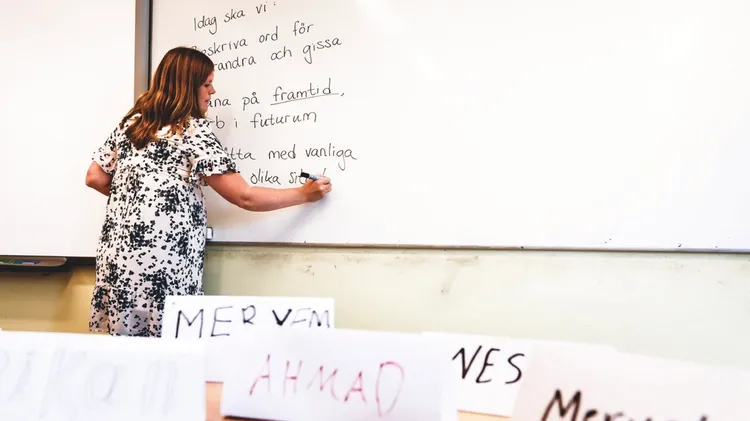 Idag ska vi:
Beskriva ord för
randra och gissa
na på framtid,
rb i futurum
tta med vanliga
olika
MERVEM
AHMAD
NES